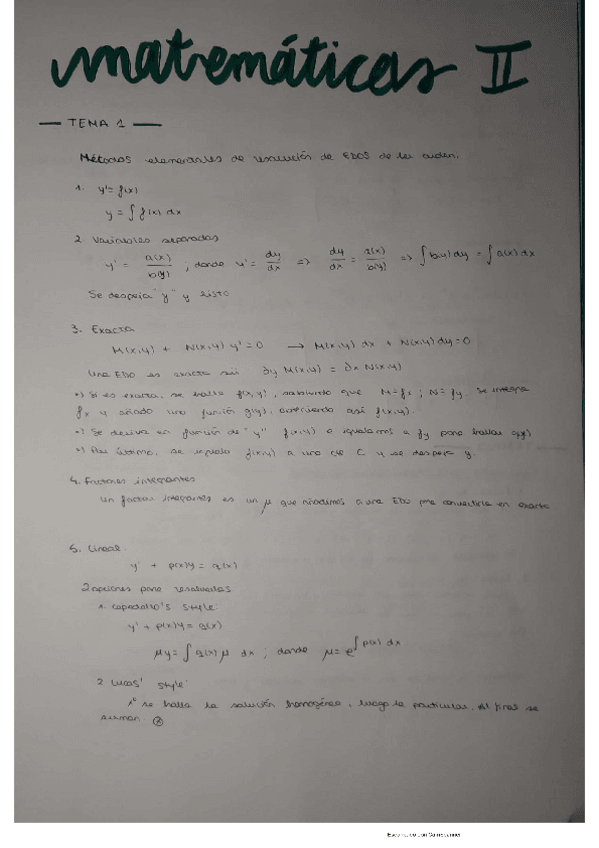 matemáticas II
— TEMA 1 —
Métodos elementales de resolución de EDOS de 1er orden:
1. y' = f(x)
y = ∫ f(x) dx
2. Variables separadas
y' = a(x)/b(y) , donde y' = dy/dx => dy/dx = a(x)/b(y) => ∫ b(y) dy = ∫ a(x) dx
Se despeja "y" y listo
3. Exacta
M(x,y) + N(x,y) y' = 0 → M(x,y) dx + N(x,y) dy = 0
Una EDO es exacta sii ∂y M(x,y) = ∂x N(x,y)
•) Si es exacta, se halla f(x,y), sabiendo que M=fx ; N=fy. Se integra
fx y añado una función g(y), obteniendo así f(x,y).
•) Se deriva en función de "y" f(x,y) e igualamos a fy para hallar g(y)
•) Por último, se iguala f(x,y) a una cte C y se despeja y.
4. Factores integrantes
Un factor integrantes es un μ que añadimos a una EDO para convertirla en exacta
5. Lineal
y' + p(x)y = q(x)
2 opciones para resolverlas
1. style:
y' + p(x)y = q(x)
μy = ∫ q(x) μ dx ; donde μ = e^∫ p(x) dx
2 Lucas' style:
1º se halla la solución homogénea, luego la particular. Al final se
suman
Escaneado con CamScanner